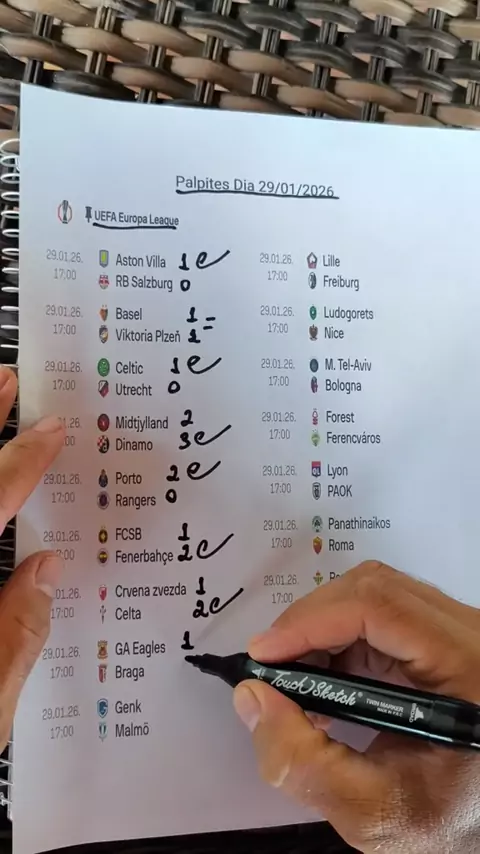 Palpites Dia 29/01/2026
UEFA Europa League
29.01.26. Aston Villa 1
17:00 RB Salzburg 0
29.01.26. Basel 1
17:00 Viktoria Plzeň 1
29.01.26. Celtic 1
17:00 Utrecht 0
Midtjylland 2
Dinamo 3
29.01.26. Porto 2
17:00 Rangers 0
29.01.26. FCSB 1
Fenerbahçe 2
29.01.26. Crvena zvezda 1
17:00 Celta 2
29.01.26. GA Eagles 1
17:00 Braga
29.01.26. Genk
17:00 Malmö
29.01.26. Lille
17:00 Freiburg
29.01.26. Ludogorets
17:00 Nice
29.01.26. M. Tel-Aviv
17:00 Bologna
29.01.26. Forest
17:00 Ferencváros
29.01.26. Lyon
17:00 PAOK
29.01.26. Panathinaikos
17:00 Roma
29.01.26.
Touch Sketch
TWIN MARKER